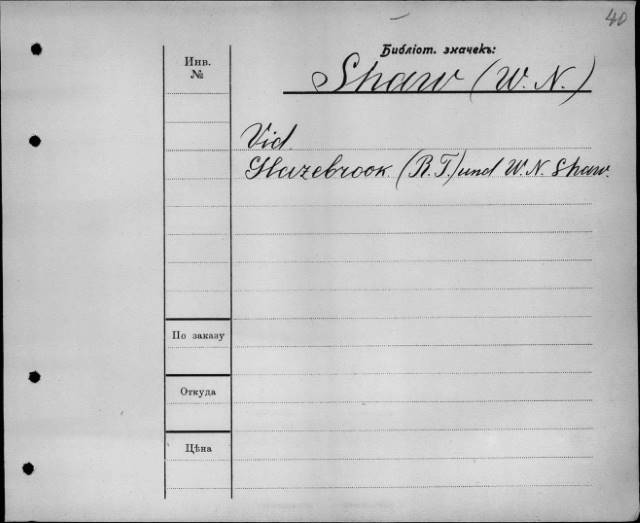 40
Библіот. значекъ:
Инв.
№
Shaw (W. N.)
Vid.
Glazebrook. (R. T.) und W. N. Shaw.
По заказу
Откуда
Цѣна